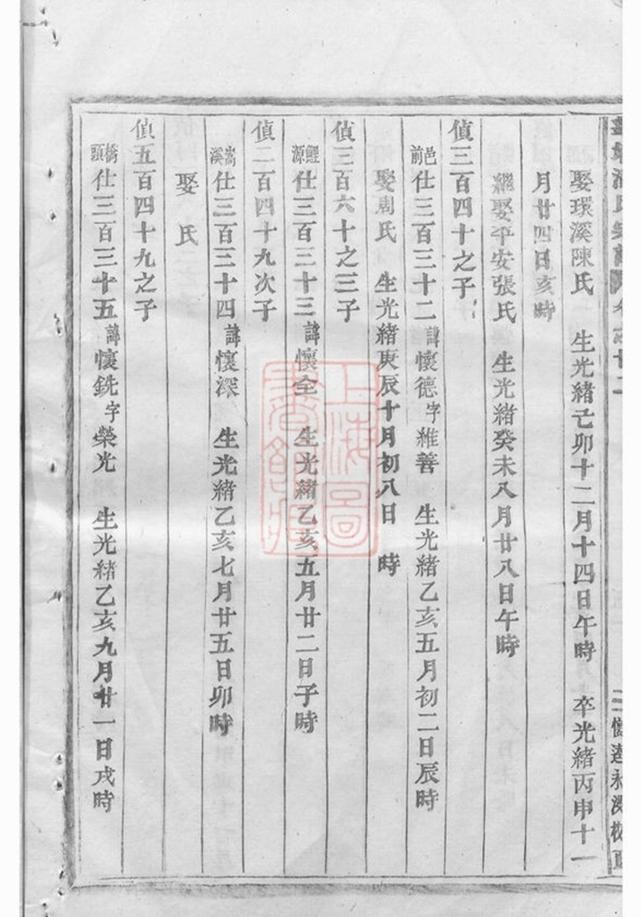 娶環溪陳氏 生光緒己卯十二月十四日午時 卒光緒丙申十一
月廿四日亥時
繼娶平安張氏 生光緒癸未八月廿八日午時
偵三百四十之子
邑前仕三百三十二諱懷德字維善 生光緒乙亥五月初二日辰時
娶周氏 生光緒庚辰十月初八日 時
偵三百六十之三子
鯉源仕三百三十三諱懷全 生光緒乙亥五月廿二日子時
偵二百四十九次子
嵩溪仕三百三十四諱懷深 生光緒乙亥七月廿五日卯時
娶 氏
偵五百四十九之子
橋頭仕三百三十五諱懷銑字榮光 生光緒乙亥九月廿一日戌時
上海圖
書館藏